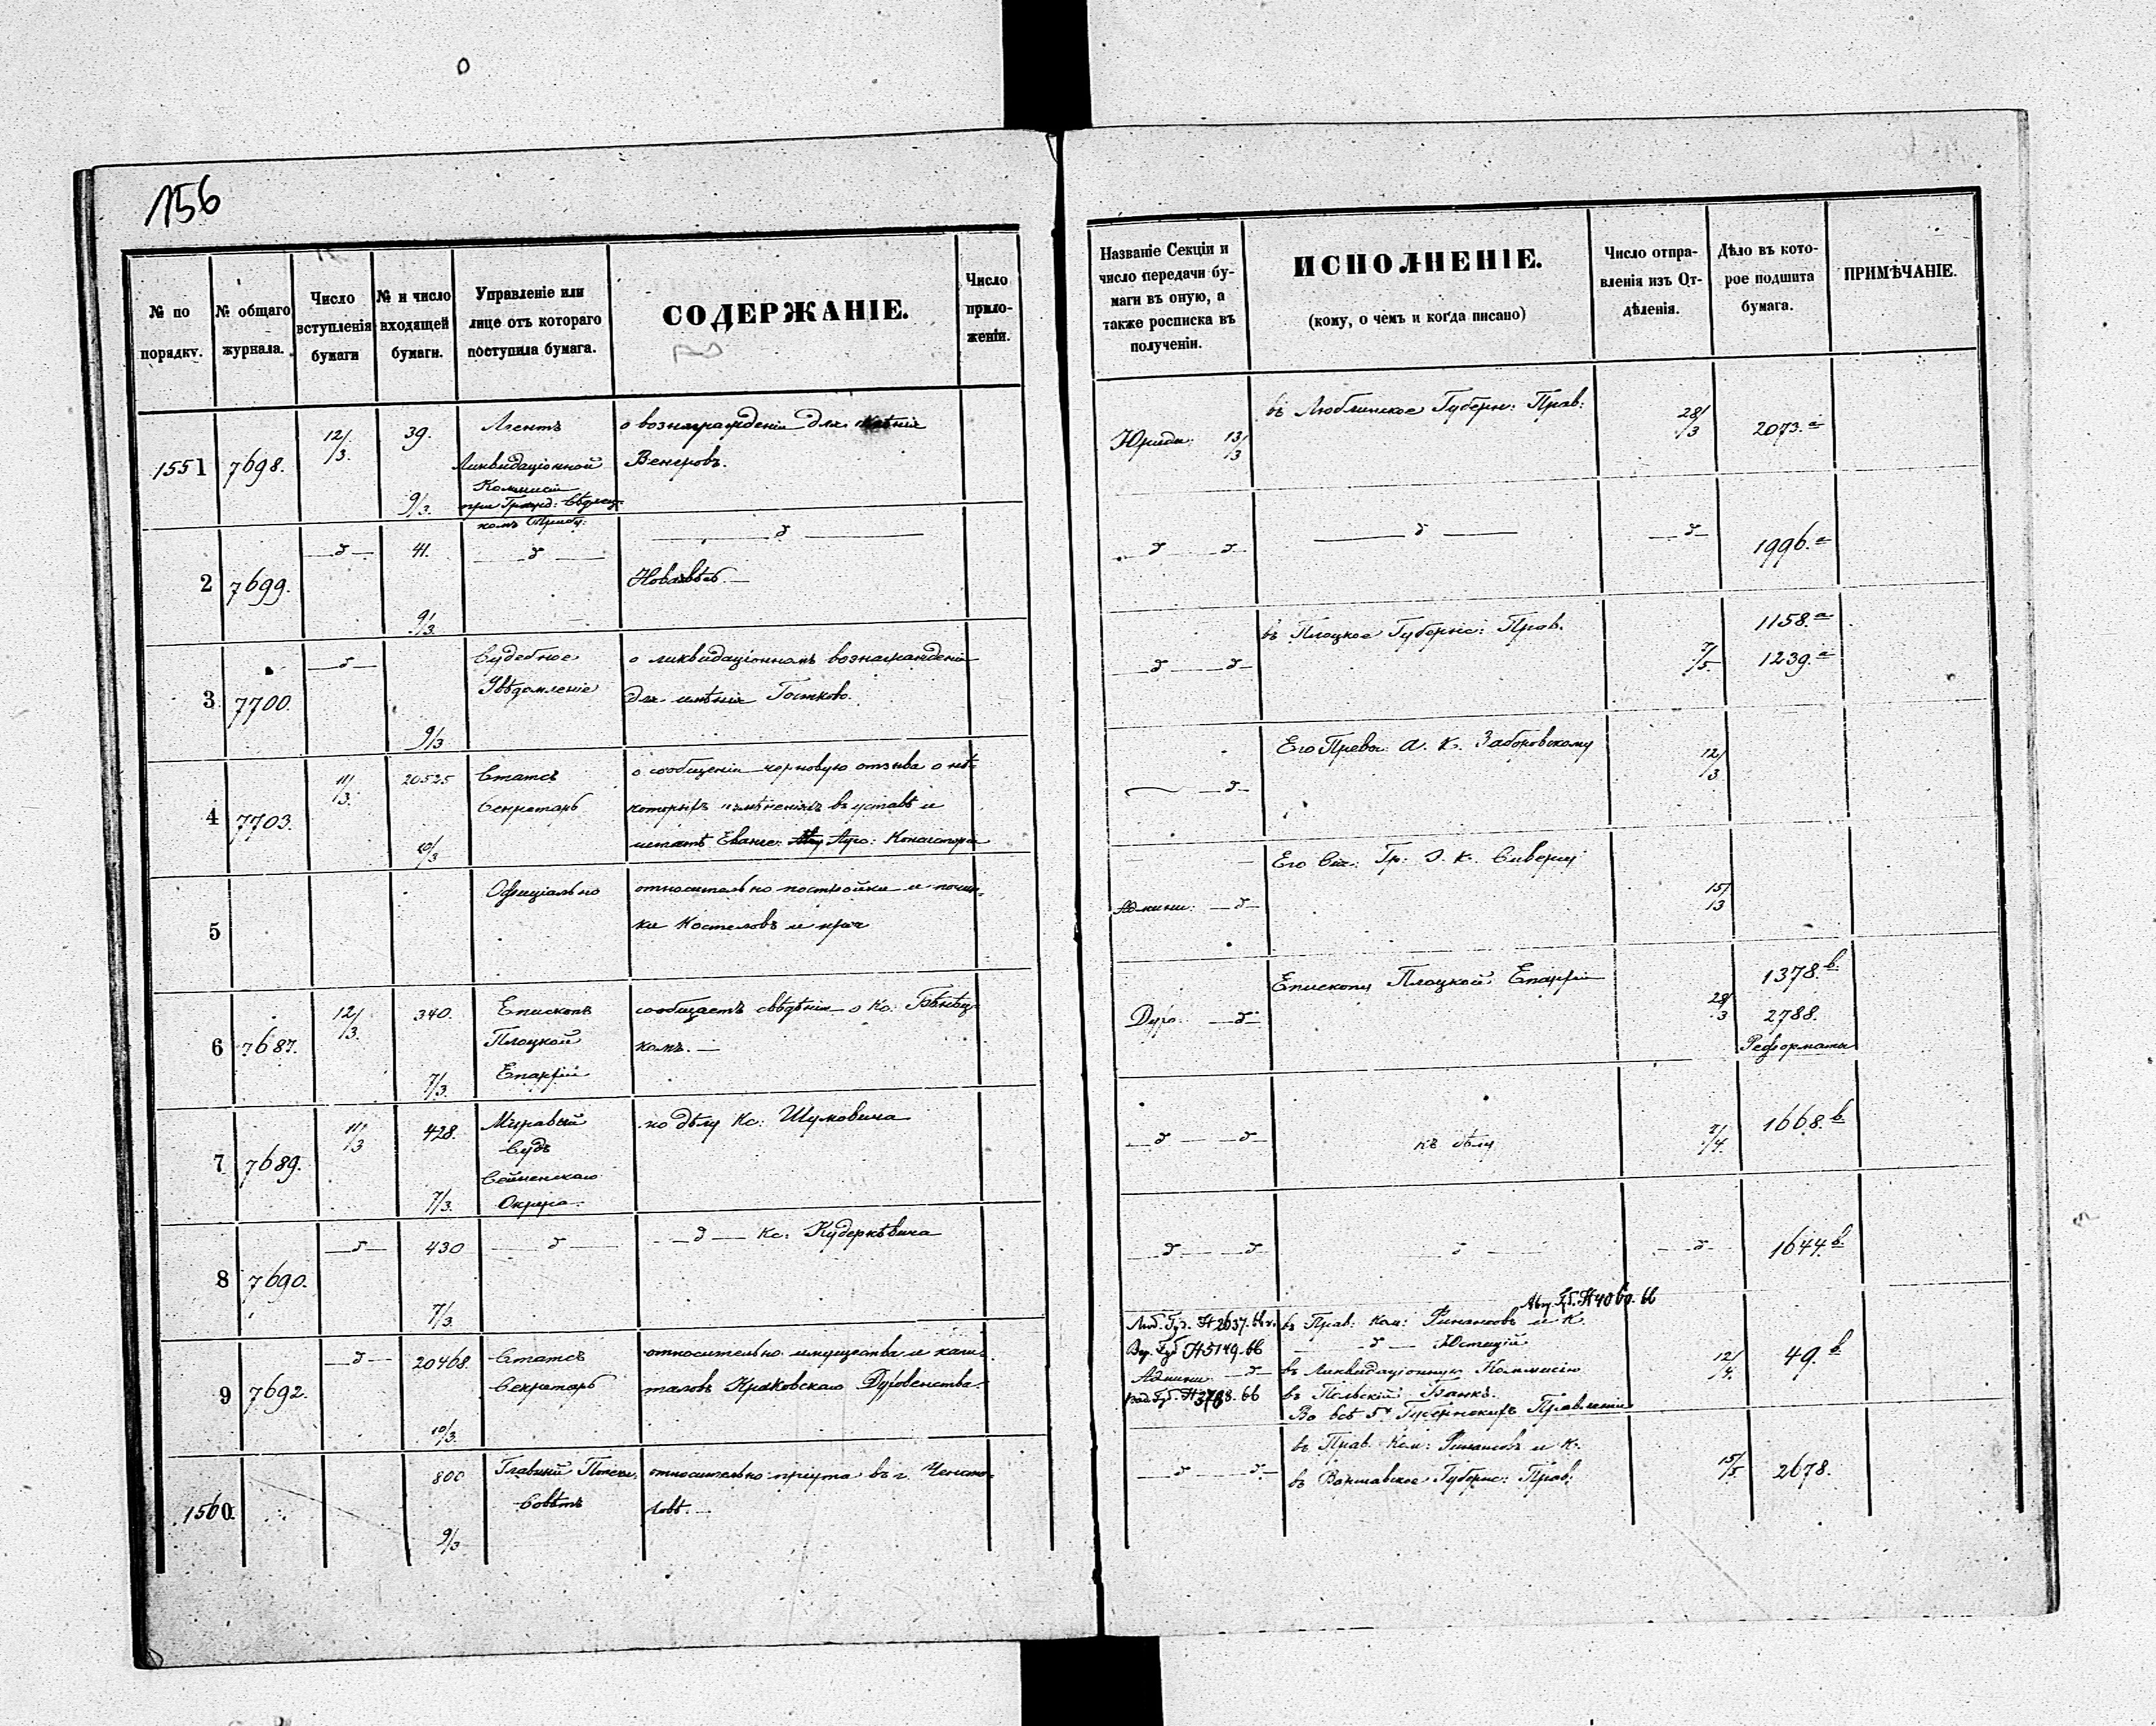 156
№ по порядку.
№ общаго журнала.
Число вступленія бумаги
№ и число входящей бумаги.
Управленіе или лице отъ котораго поступила бумага.
СОДЕРЖАНІЕ.
Число приложеній.
Названіе Секціи и число передачи бумаги въ оную, а также росписка въ полученіи.
ИСПОЛНЕНІЕ.
(кому, о чемъ и когда писано)
Число отправленія изъ Отдѣленія.
Дѣло въ которое подшита бумага.
ПРИМѢЧАНІЕ.
1551 7698. 12/3. 39. 9/3.
Агентъ
Ликвидаціонной
Коммисіи
при
о вознагражденіи для имѣнія
Венгровъ.
Юриди: 13/3
въ Люблинское Губерн: Прав:
28/3
2073.а
2 7699. —д— 41. 9/3.
—д—
—д—
—д— д—
—д—
—д—
1996.а
3 7700. —д— 9/3
Судебное
Увѣдомленіе
о ликвидаціонномъ вознагражденіи
для имѣнія Гостково.
—д— д—
въ Плоцкое Губернс: Прав.
7/5
1158.а
1239.а
4 7703. 11/3. 20525 10/3
Статсъ
Секретарь
о сообщеніи черновую отзыва о нѣ-
которыхъ измѣненіяхъ въ уставѣ и
штатѣ Еванге: Ауго: Консисторіи
—д—
Его Превос: А. К. Заборовскому
12/3
5
Офиціально
относительно постройки и почин-
ки Костеловъ и проч
Админи: —д—
Его Сія: Гр: Э. К. Сиверсу
15/13
6 7687. 12/3. 340. 7/3.
Епископъ
Плоцкой
Епархіи
сообщаетъ свѣдѣнія о Кс:
комъ. —
Духо: —д—
Епископу Плоцкой Епархіи
28/3
1378.в.
2788.
Реформаты
7 7689. 11/3 428. 7/3.
Мировый
Судъ
Сейненскаго
Округа.
по дѣлу Кс: Шумовича
—д— —д—
къ дѣлу
7/4.
1668.в
8 7690. —д— 430 7/3.
—д—
—д— Кс: Кудеркѣвича
—д— —д
д —
—д—
1644.в.
9 7692. —д— 20468. 10/3.
Статсъ
Секретарь
относительно имущества и капи-
таловъ Краковскаго Духовенства.
Люб. Гу. № 2637. 66
Вар. Губ № 5149. 66
Админи: —д—
Рад. Гб. № 3788. 66
Авг. Гб. № 4060. 66
въ Прав: Ком: Финансовъ и К.
—д— Юстиціи
въ Ликвидаціонную Коммисію
въ Польскій Банкъ.
Во всѣ 5ъ Губернскихъ Правленія
12/4.
49.в
1560. 800 9/3
Главный Попечи.
Совѣтъ
относительно пріюта въ г. Ченсто-
ховѣ. —
—д— —д—
въ Прав. Ком: Финансовъ и К.
въ Варшавское Губернс: Прав:
15/5.
2678.